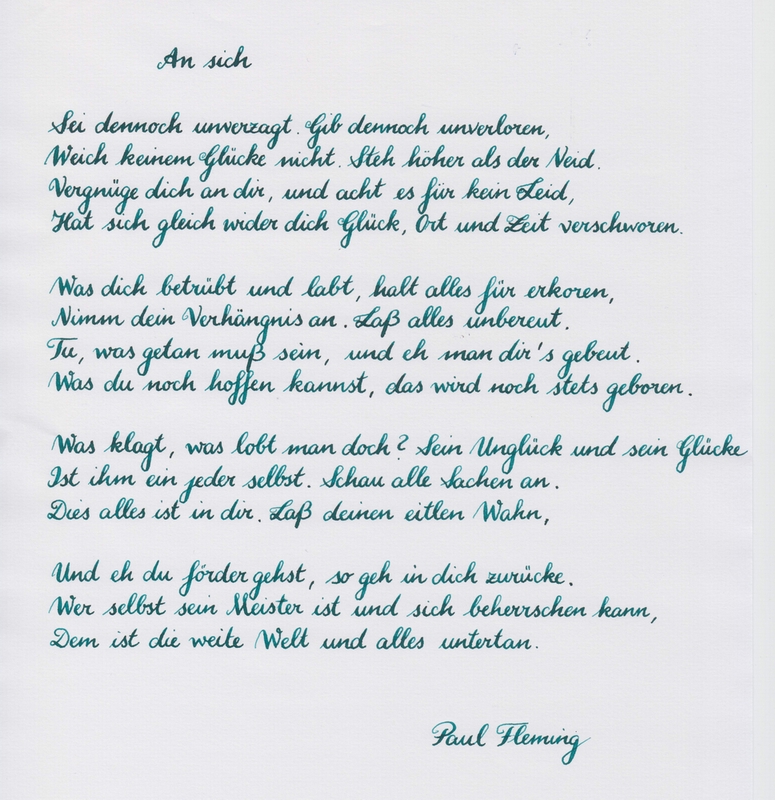 An sich
Sei dennoch unverzagt. Gib dennoch unverloren,
Weich keinem Glücke nicht. Steh höher als der Neid.
Vergnüge dich an dir, und acht es für kein Leid,
Hat sich gleich wider dich Glück, Ort und Zeit verschworen.
Was dich betrübt und labt, halt alles für erkoren,
Nimm dein Verhängnis an. Laß alles unbereut.
Tu, was getan muß sein, und eh man dir's gebeut.
Was du noch hoffen kannst, das wird noch stets geboren.
Was klagt, was lobt man doch? Sein Unglück und sein Glücke
Ist ihm ein jeder selbst. Schau alle Sachen an.
Dies alles ist in dir. Laß deinen eitlen Wahn,
Und eh du förder gehst, so geh in dich zurücke.
Wer selbst sein Meister ist und sich beherrschen kann,
Dem ist die weite Welt und alles untertan.
Paul Fleming